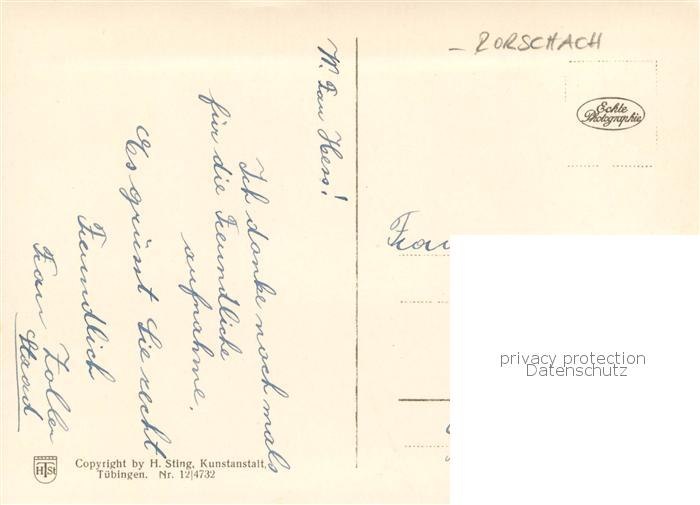 W. Frau Hess!
Ich danke noch mals
für die Freundliche
aufnahme.
Es grüsst Sie recht
Freundlich
Frau Zoller
Staad
Copyright by H. Sting, Kunstanstalt,
Tübingen. Nr. 12|4732
HSt
– RORSCHACH
Echte
Photographie
Frau
privacy protection
Datenschutz